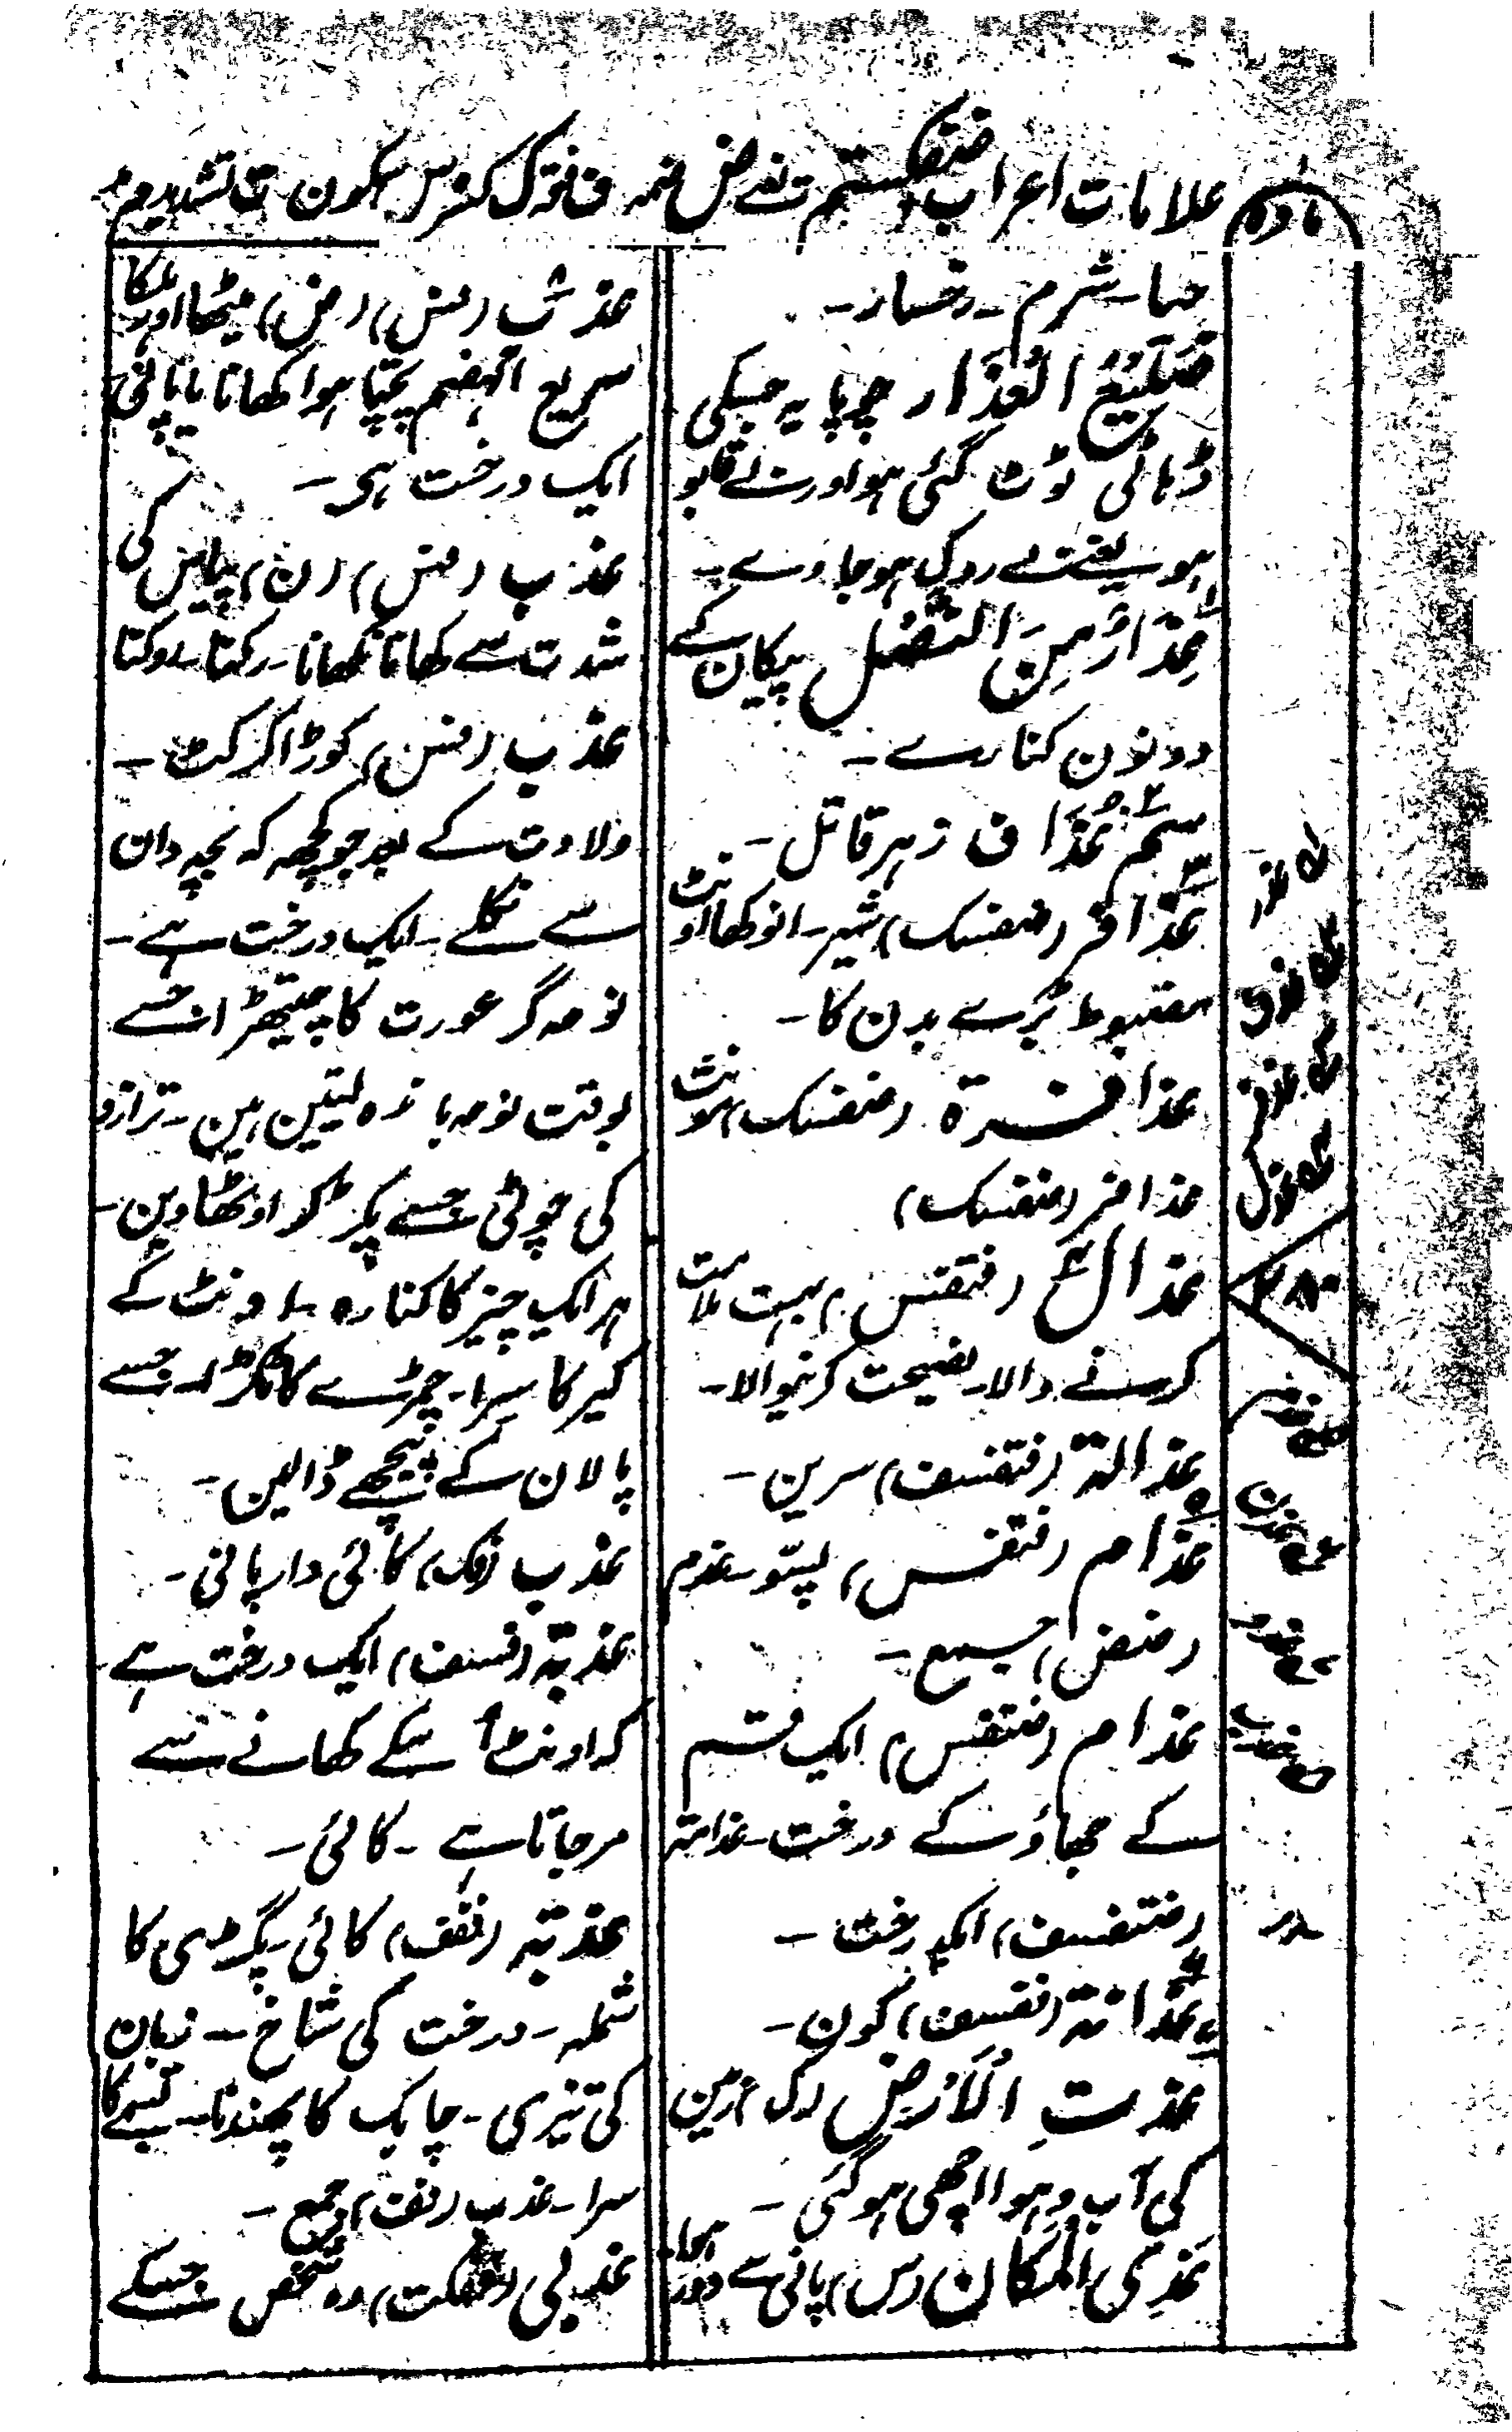 مادہ
علامات اعراب ضفکستم ت نے ض ضمہ ف فتح ک کسر س سکون ت تشدید م مد
حیا۔ شرم۔ رخسار۔
خَلِیْعُ الْعِذَار چوپایہ جسکی
ڈہاٹی ٹوٹ گئی ہو اور بے قابو
ہو یعنے بے روک ہو جاوے۔
عِذَارٌ مِنَ النَّصْل پیکان کے
دونون کنارے۔
سَمٌّ عُذَاف زہر قاتل۔
عُذَافر (ضفسک) شیر۔ انوکھا اونٹ
مضبوط بڑے بدن کا۔
عذافرۃ (ضفسک)
عذافر (ضفسک)
عذال (فتفس) بہت ملامت
کرنے والا۔ نصیحت کرنیوالا۔
عذالۃ (فتفسف) سرین۔
عذام (فتفس) پسّو۔ عذم
(ضض) جمع۔
عذام (ضتفس) ایک قسم
کے جھاؤ کے درخت۔ عذامۃ
(ضتفسف) ایکدرخت۔
عذانۃ (فتسف) کون۔
عذتِ الْاَرْض (ک) زمین
کی آب و ہوا اچھی ہو گئی۔
عَذِیَ الْمَکَان (س) پانی سے دور
۲۸۰
عذب (فس) (ض) میٹھا اور ہلکا
سریع الہضم پچتا ہوا کھانا یا پانی
ایک درخت ہے۔
عذب (فس) (ن) پیاس کی
شدت سے کھانا نکھانا۔ رکنا۔ روکنا
عذب (فس) کوڑا کرکٹ۔
ولادت کے بعد جو کچھہ کہ بچہ دان
سے نکلے۔ ایک درخت ہے۔
نوحہ گر عورت کا چیتھڑا جسے
بوقت نوحہ باندہ لیتین ہین۔ ترازو
کی چوٹی جسے پکڑ کر اوٹھاوین۔
ہر ایک چیز کا کنارہ۔ اونٹ کے
کیر کا سرا۔ چمڑے کا ٹکڑا جسے
پالان کے پیچھے ڈالین۔
عذب (فک) کائی دار پانی۔
عذبۃ (فسف) ایک درخت ہے
کہ اونٹ اسکے کھانے سے
مرجاتا ہے۔ کائی۔
عذبۃ (ففف) کائی۔ پگڑی کا
شملہ۔ درخت کی شاخ۔ زبان
کی تیزی۔ چابک کا پھندنا۔ تسمے کا
سرا۔ عذب (فف) جمع۔
عذبی وہ شخص جسکے